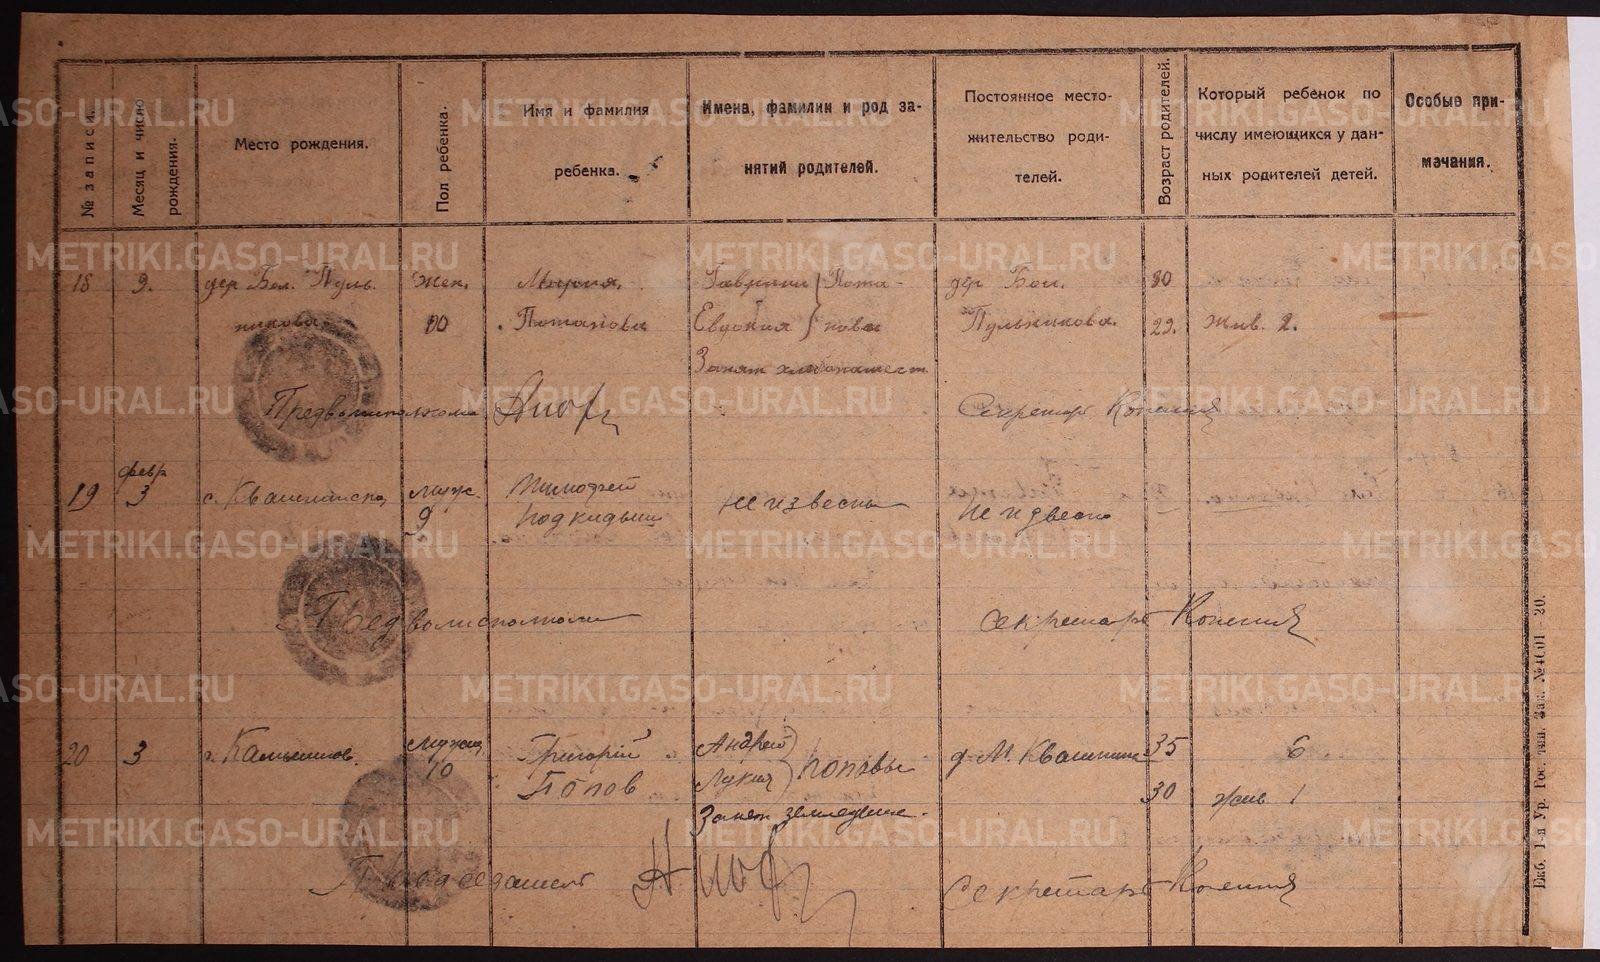 № записи.
Месяц и число
рождения.
Место рождения.
Пол ребенка.
Имя и фамилия
ребенка.
Имена, фамилии и род за-
нятий родителей.
Постоянное место-
жительство роди-
телей.
Возраст родителей.
Который ребенок по
числу имеющихся у дан-
ных родителей детей.
Особые при-
мачания.
18 9. дер Бол. Пуль
никова
Жен.
10
Мария.
Потапова
Гаврил Пота-
Евдокия повы
Занят хлебопашест
дер Бол.
Пульникова.
30
29.
жив. 2.
Предволисполкома
Секретарь
19 февр
3
муж.
9
Тимофей
Подкидыш
неизвесны
Неизвесно
Предволисполкома
Секретарь
20 3
мужск
10
Григорий
Попов
Андрей
Лукия Поповы
Занят земледелие.
д. М. Квашнин
35
30
6
жив 1
Председатель
Секретарь
Екб. 1-я Ур. Гос. тип. Зак. №4601—20.
METRIKI.GASO-URAL.RU